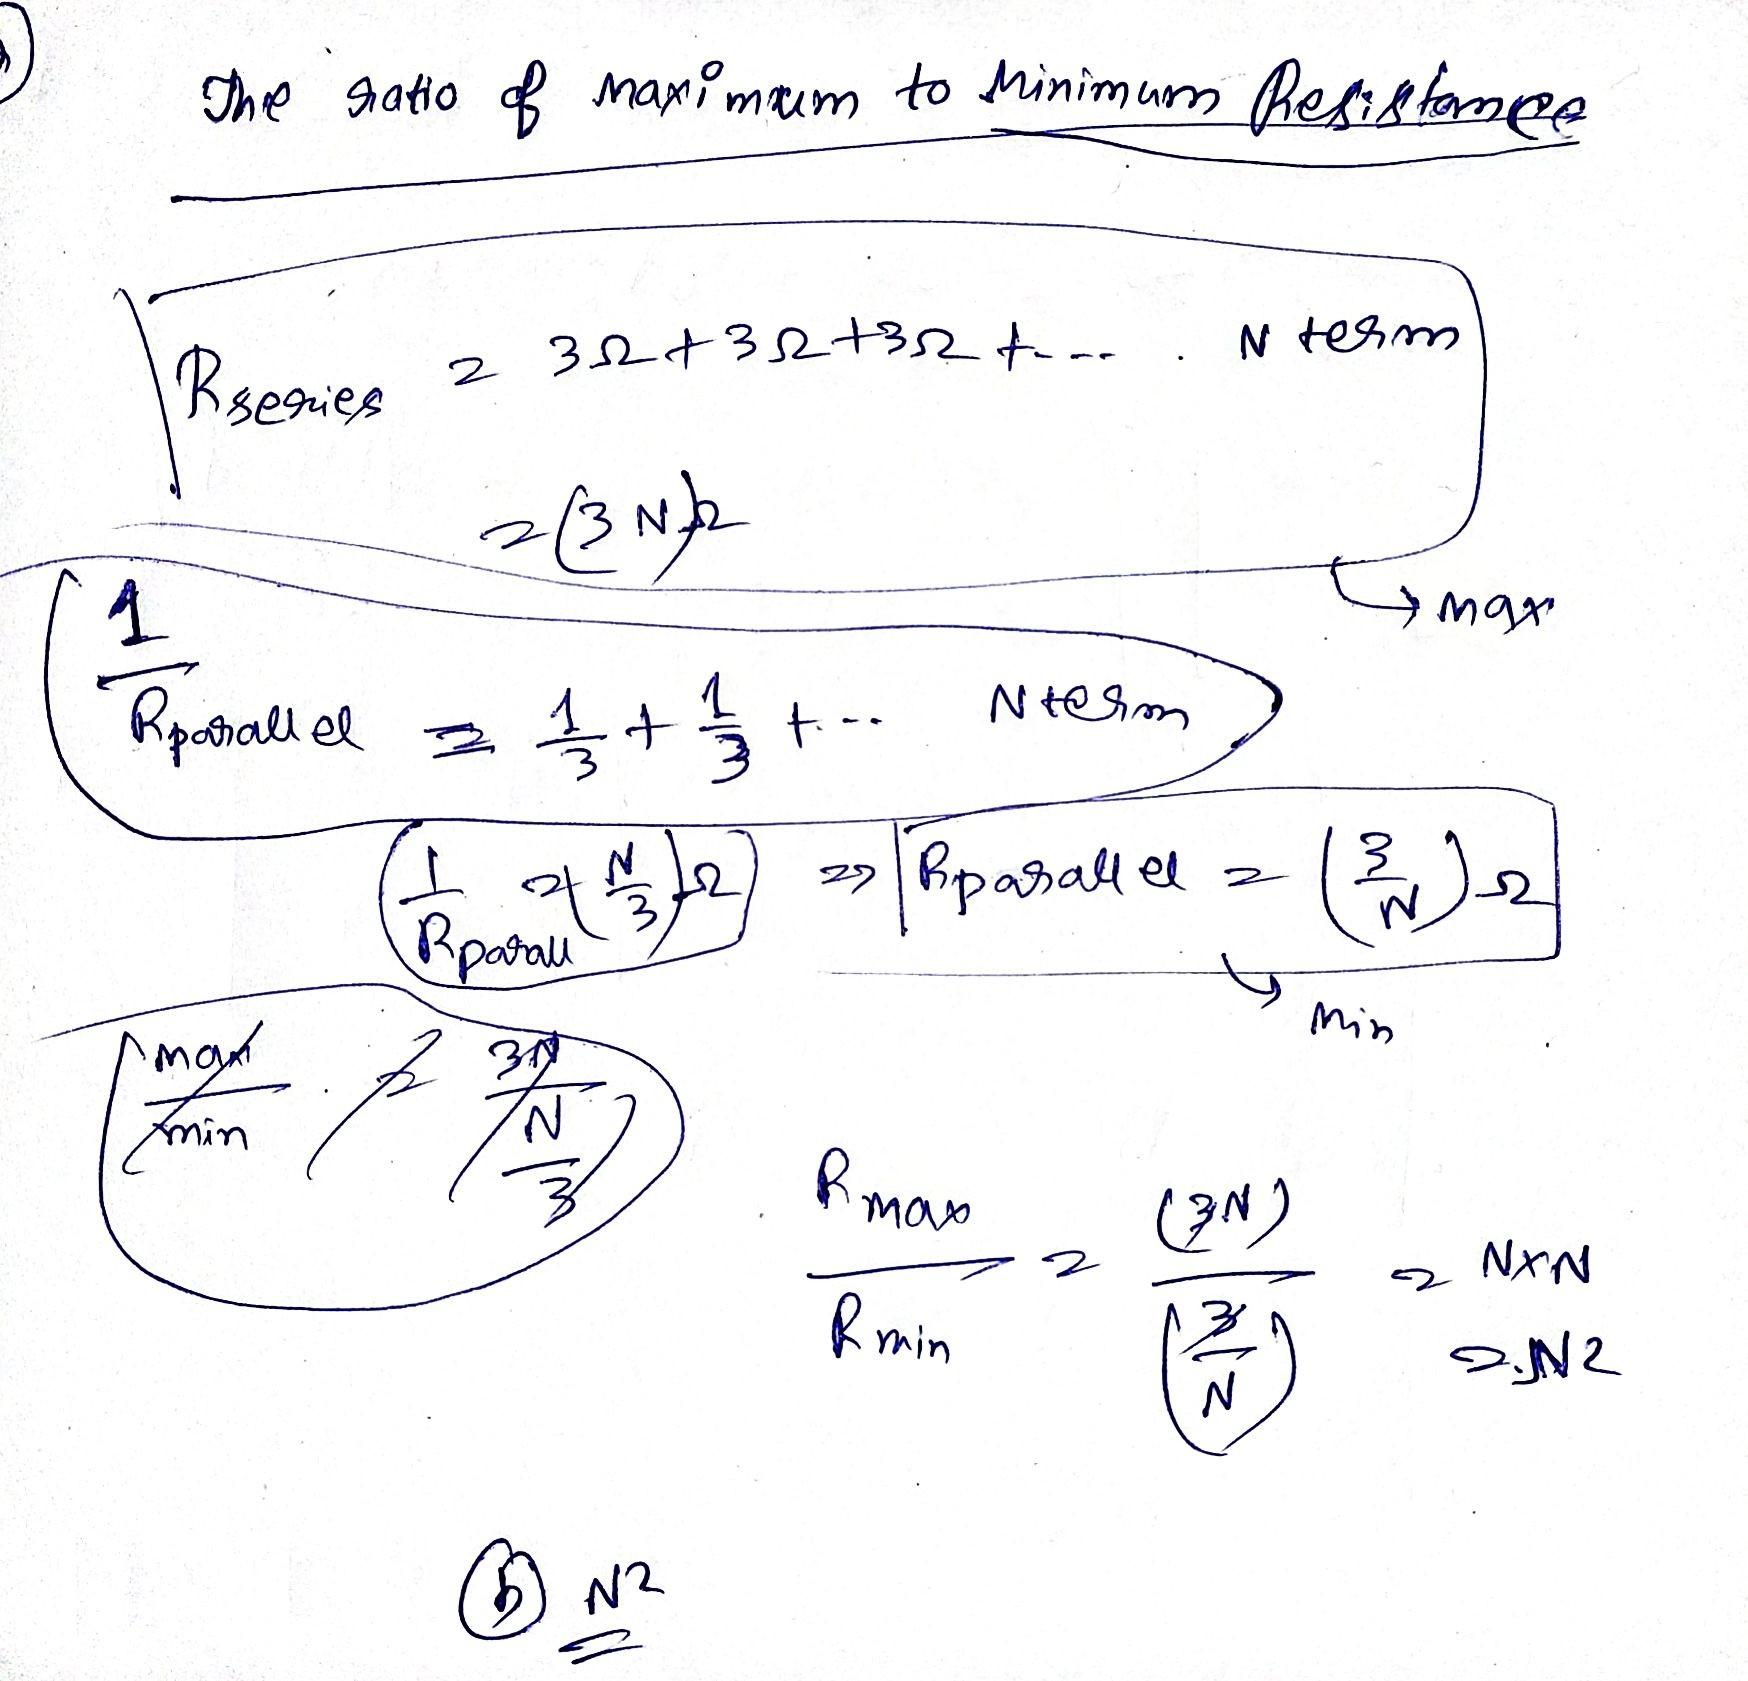 The ratio of maximum to Minimum Resistance
Rseries = 3Ω+3Ω+3Ω+--- . N term
=(3N)Ω
→ max
1/Rparallel = 1/3 + 1/3 +... N term
1/Rparall = (N/3)Ω => Rparallel = (3/N)Ω
Min
max/min = 3N/(N/3)
Rmax/Rmin = (3N)/(3/N) = N×N
= N2
(b) N2